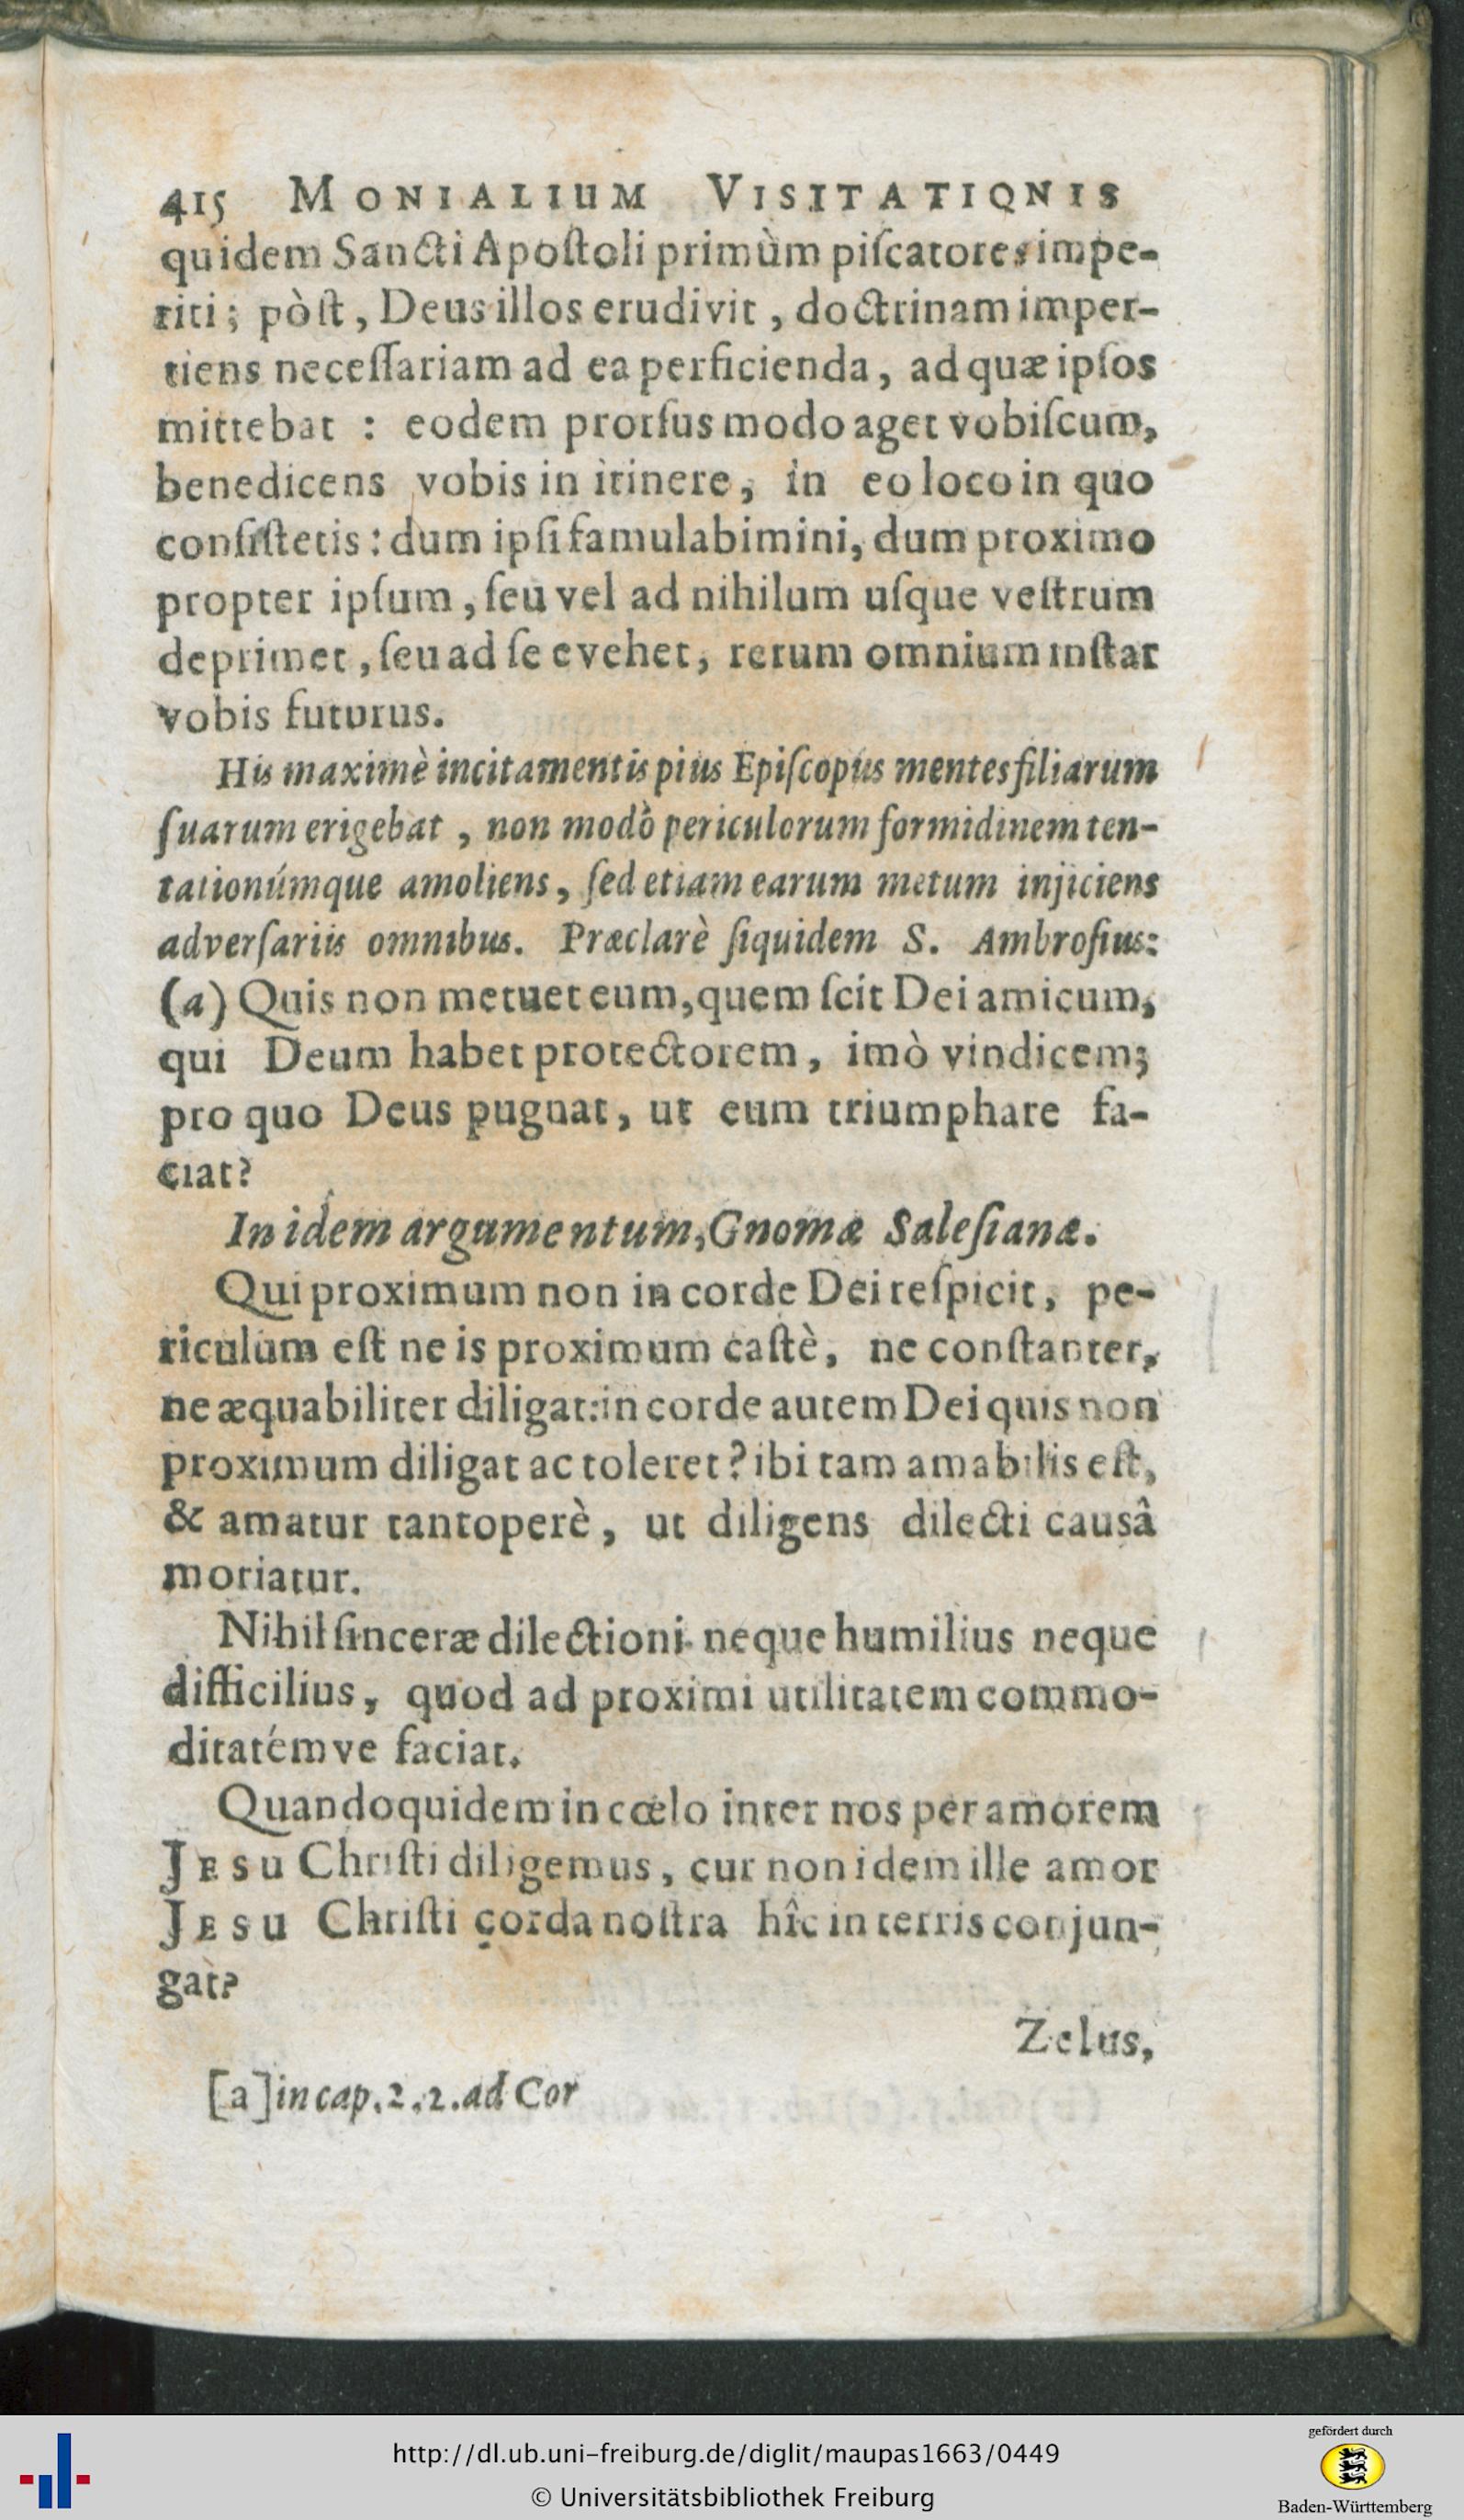 415 MONIALIUM VISITATIONIS
quidem Sancti Apoſtoli primùm piſcatores impe-
riti; pòſt, Deus illos erudivit, doctrinam imper-
tiens neceſſariam ad ea perficienda, ad quæ ipſos
mittebat : eodem prorſus modo aget vobiſcum,
benedicens vobis in itinere, in eo loco in quo
conſiſtetis : dum ipſi famulabimini, dum proximo
propter ipſum, ſeu vel ad nihilum uſque veſtrum
deprimet, ſeu ad ſe evehet, rerum omnium inſtar
vobis futurus.
His maximè incitamentis pius Epiſcopus mentes filiarum
ſuarum erigebat, non modò periculorum formidinem ten-
tationúmque amoliens, ſed etiam earum metum injiciens
adverſariis omnibus. Præclarè ſiquidem S. Ambroſius:
(a) Quis non metuet eum, quem ſcit Dei amicum,
qui Deum habet protectorem, imò vindicem;
pro quo Deus pugnat, ut eum triumphare fa-
ciat?
In idem argumentum, Gnomæ Saleſianæ.
Qui proximum non in corde Dei reſpicit, pe-
riculum eſt ne is proximum caſtè, ne conſtanter,
ne æquabiliter diligat: in corde autem Dei quis non
proximum diligat ac toleret? ibi tam amabilis eſt,
& amatur tantoperè, ut diligens dilecti causâ
moriatur.
Nihil ſinceræ dilectioni neque humilius neque
difficilius, quod ad proximi utilitatem commo-
ditatémve faciat.
Quandoquidem in cœlo inter nos per amorem
JESU Chriſti diligemus, cur non idem ille amor
JESU Chriſti corda noſtra hîc in terris conjun-
gat?
Zelus,
[a] in cap. 2. 2. ad Cor
http://dl.ub.uni-freiburg.de/diglit/maupas1663/0449
© Universitätsbibliothek Freiburg
gefördert durch
Baden-Württemberg